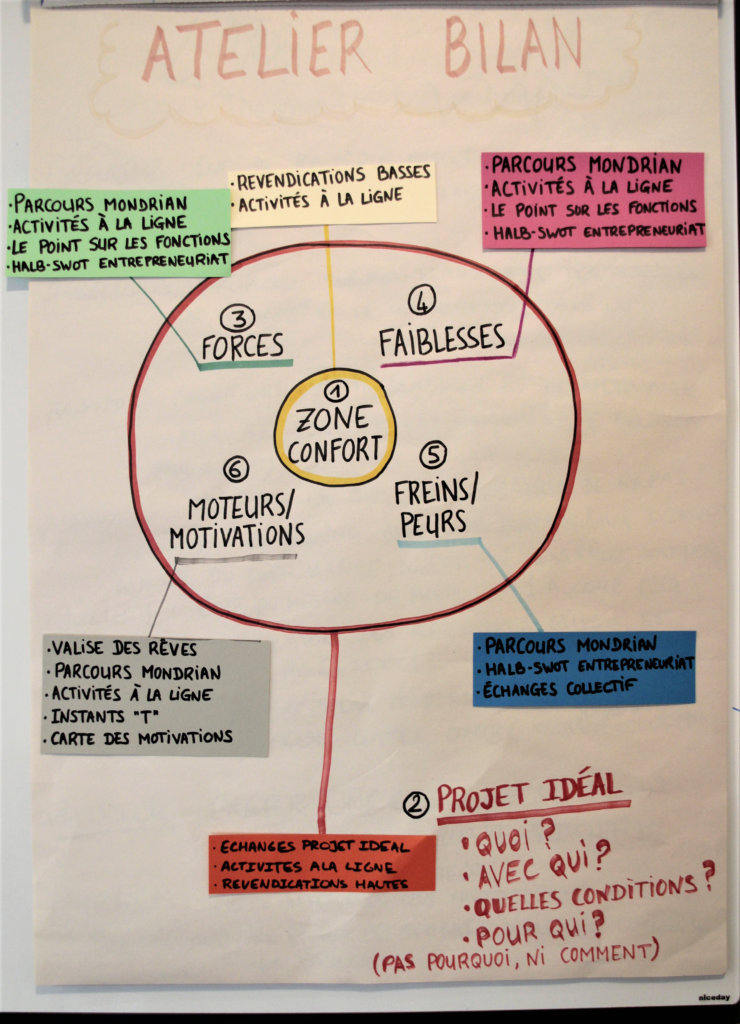 ATELIER BILAN
• REVENDICATIONS BASSES
• ACTIVITÉS À LA LIGNE
• PARCOURS MONDRIAN
• ACTIVITÉS À LA LIGNE
• LE POINT SUR LES FONCTIONS
• HALB-SWOT ENTREPRENEURIAT
• PARCOURS MONDRIAN
• ACTIVITÉS À LA LIGNE
• LE POINT SUR LES FONCTIONS
• HALB-SWOT ENTREPRENEURIAT
3
FORCES
4
FAIBLESSES
1
ZONE
CONFORT
6
MOTEURS/
MOTIVATIONS
5
FREINS/
PEURS
• VALISE DES RÊVES
• PARCOURS MONDRIAN
• ACTIVITÉS À LA LIGNE
• INSTANTS "T"
• CARTE DES MOTIVATIONS
• PARCOURS MONDRIAN
• HALB-SWOT ENTREPRENEURIAT
• ÉCHANGES COLLECTIF
• ECHANGES PROJET IDEAL
• ACTIVITES A LA LIGNE
• REVENDICATIONS HAUTES
2 PROJET IDÉAL
• QUOI ?
• AVEC QUI ?
• QUELLES CONDITIONS ?
• POUR QUI ?
(PAS POURQUOI, NI COMMENT)
niceday